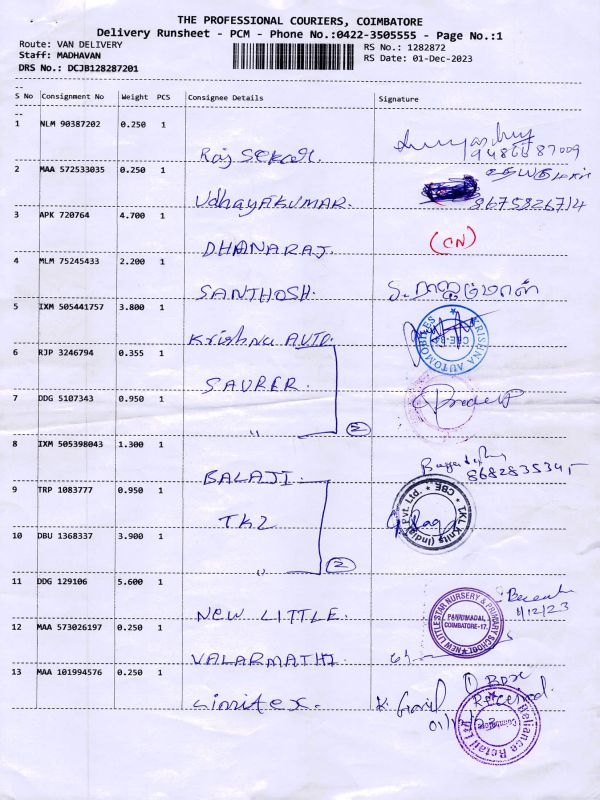 THE PROFESSIONAL COURIERS, COIMBATORE
Delivery Runsheet - PCM - Phone No.:0422-3505555 - Page No.:1
Route: VAN DELIVERY
RS No.: 1282872
Staff: MADHAVAN
RS Date: 01-Dec-2023
DRS No.: DCJB128287201
S No Consignment No Weight PCS Consignee Details Signature
1 NLM 90387202 0.250 1
Raj Sekar.
2 MAA 572533035 0.250 1
UdhayaKUMAR. 8675826714
3 APK 720764 4.700 1
DHANARAJ. (CN)
4 MLM 75245433 2.200 1
SANTHOSH.
5 IXM 505441757 3.800 1
Krishna AUTO. KRISHNA AUTOMOBILES
6 RJP 3246794 0.355 1
SAURER.
7 DDG 5107343 0.950 1
,, 2
8 IXM 505398043 1.300 1
BALAJI. 8682835345
9 TRP 1083777 0.950 1
TKL TKL Knits (India) Pvt. Ltd. * CBE *
10 DBU 1368337 3.900 1
,, 2
11 DDG 129106 5.600 1
NEW LITTLE. NEW LITTLE STAR NURSERY & PRIMARY SCHOOL PANNIMADAI, COIMBATORE-17. 1/12/23
12 MAA 573026197 0.250 1
VALARMATHI
13 MAA 101994576 0.250 1
1 Box
Received
Reliance Retail Ltd Coimbatore